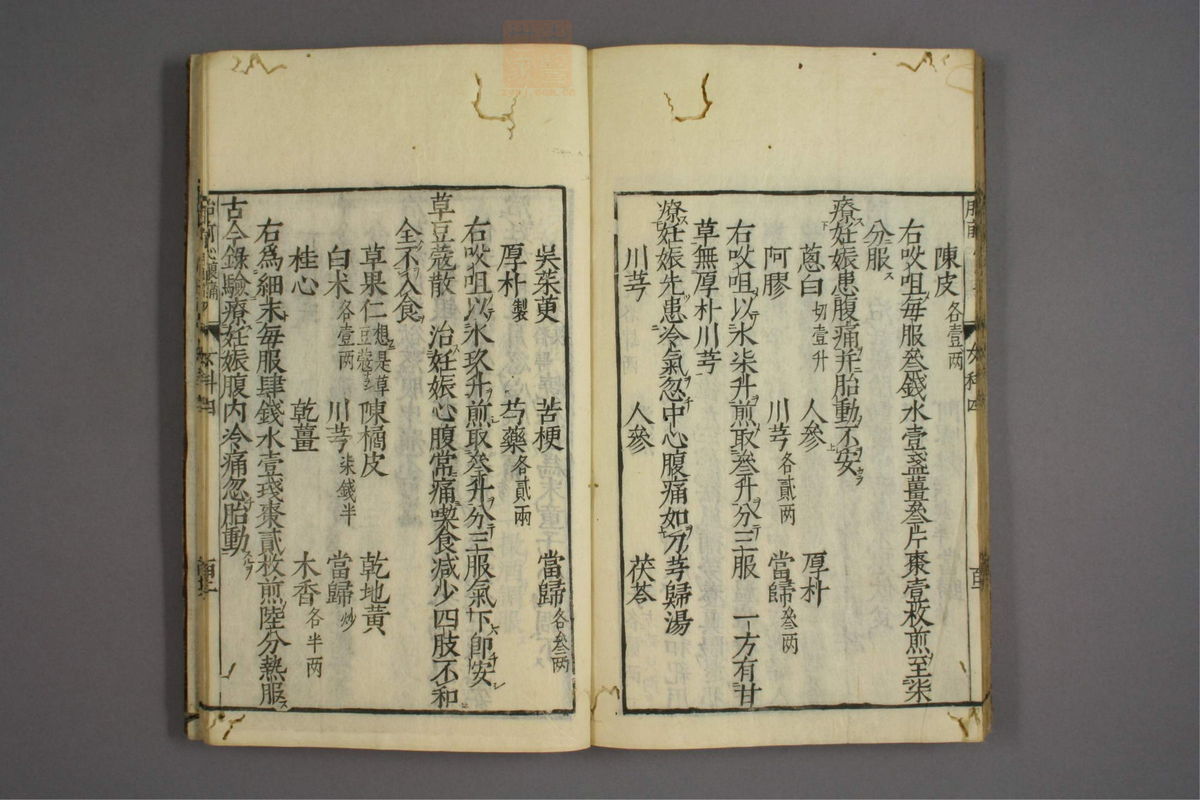 陳皮各壹兩
右㕮咀每服叄錢水壹盞薑叄片棗壹枚煎至柒
分服
療妊娠患腹痛并胎動不安
葱白切壹升 人參 厚朴
阿膠 川芎各貳兩 當歸叄兩
右㕮咀以水柒升煎取叄升分三服 一方有甘
草無厚朴川芎
療妊娠先患冷氣忽中心腹痛如刀芎歸湯
川芎 人參 茯苓
吳茱萸 苦梗 當歸各叄兩
厚朴製 芍藥各貳兩
右㕮咀以水玖升煎取叄升分三服氣下卽安
草豆蔻散 治妊娠心腹常痛喫食減少四肢不和
全不入食
草果仁想是草豆蔻 陳橘皮 乾地黃
白朮各壹兩 川芎柒錢半 當歸炒
桂心 乾薑 木香各半兩
右爲細末每服肆錢水壹琖棗貳枚煎陸分熱服
古今錄驗療妊娠腹內冷痛忽胎動
女科四